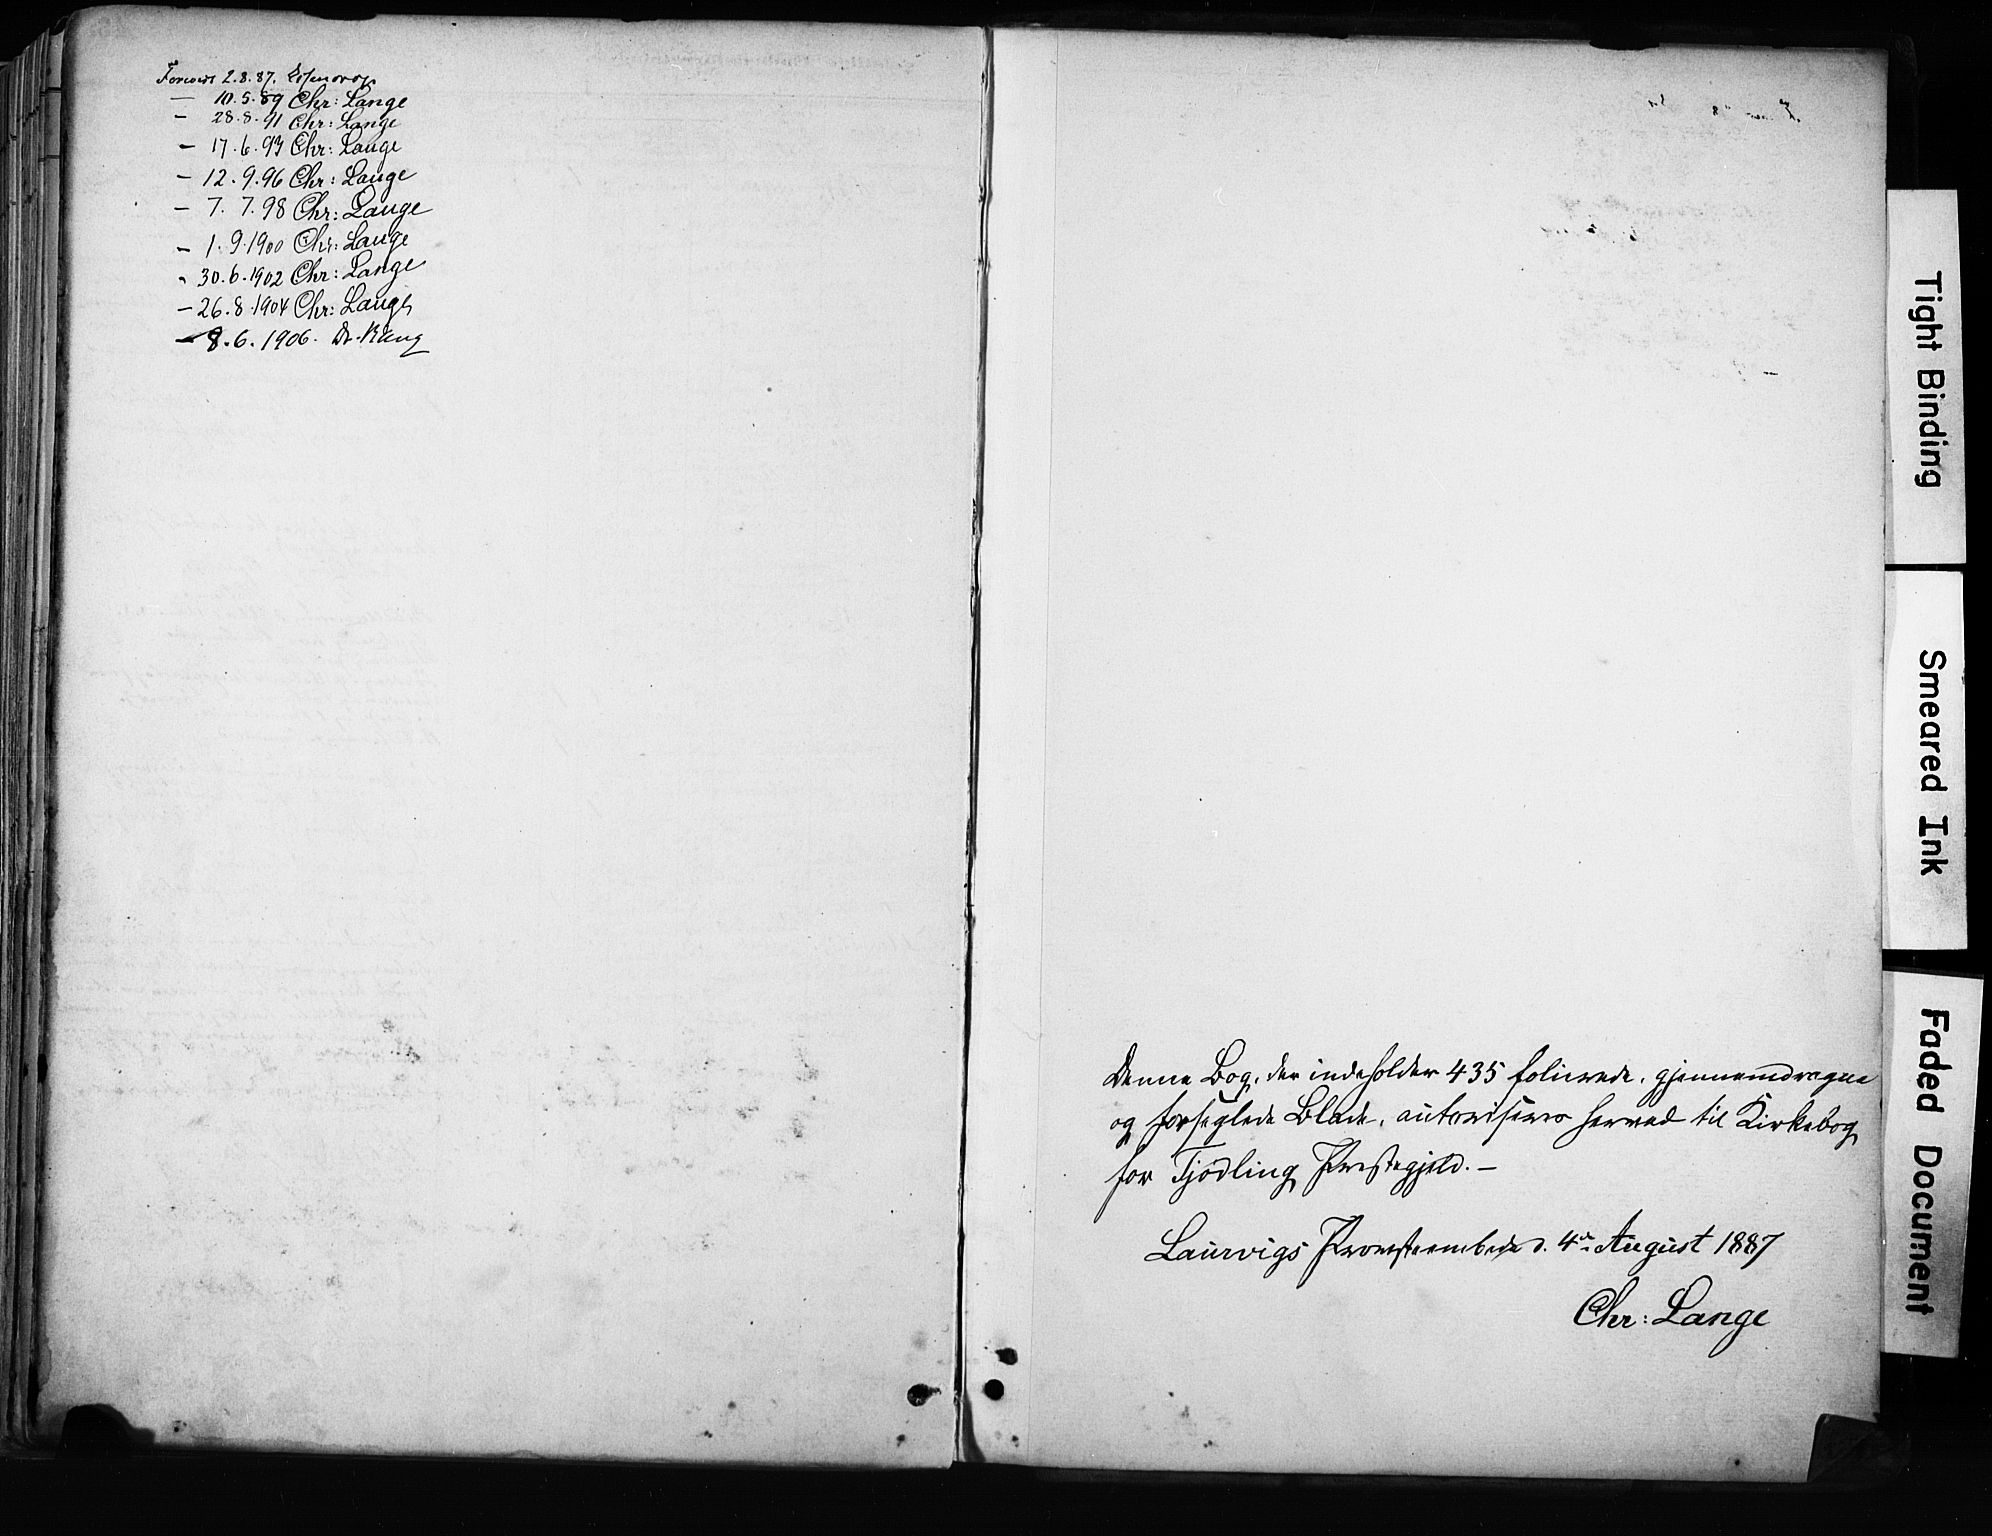 Forevist 2.8.87.
— 10.5.89 Chr: Lange
— 28.8.91 Chr: Lange
— 17.6.93 Chr: Lange
— 12.9.96 Chr: Lange
— 7.7.98 Chr: Lange
— 1.9.1900 Chr: Lange
— 30.6.1902 Chr: Lange
— 26.8.1904 Chr: Lange
— 8.6.1906.
Denne Bog, der indeholder 435 folierede, gjennemdragne
og forseglede Blade, autoriseres herved til Kirkebog
for Tjødling Præstegjeld. —
Laurvigs Provsteembede d. 4de August 1887
Chr: Lange
Tight Binding
Smeared Ink
Faded Document